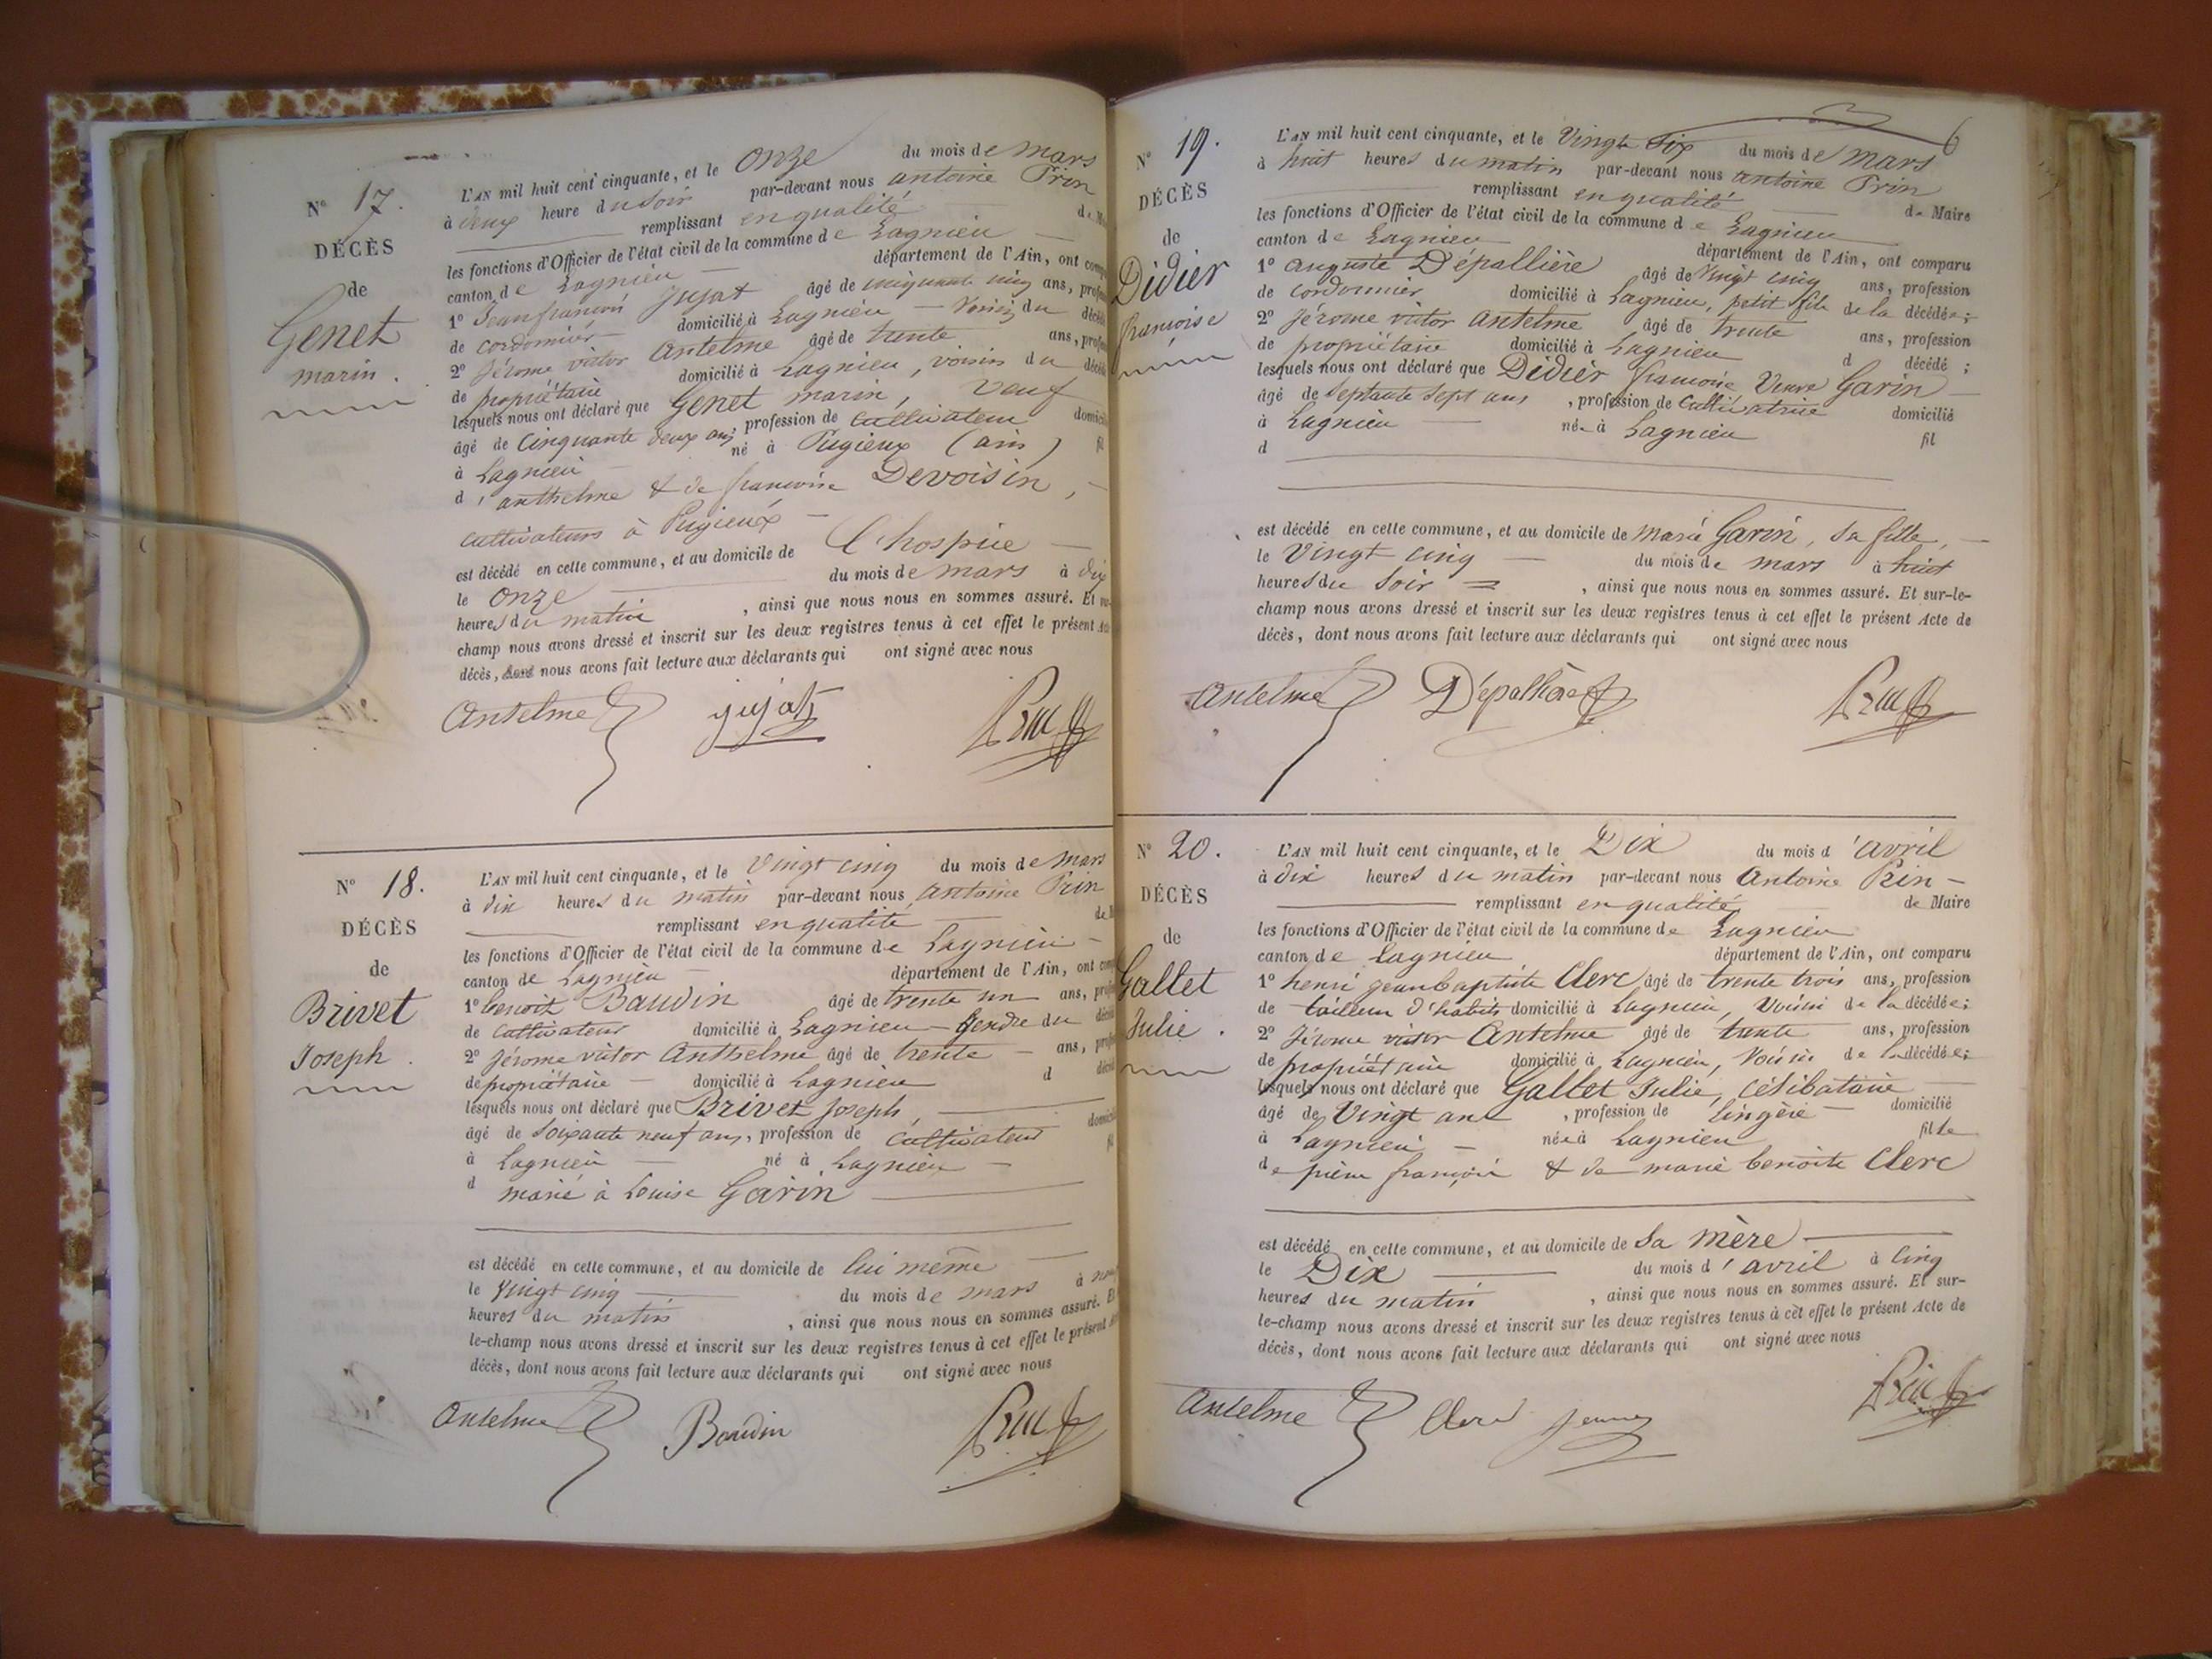 N° 17.
DÉCÈS
de
Genet
marin.
L'AN mil huit cent cinquante, et le Onze du mois de mars
à deux heure du soir par-devant nous antoine Prin
remplissant en qualité de M
les fonctions d'Officier de l'état civil de la commune de Lagnieu
canton de Lagnieu département de l'Ain, ont comp
1° Jean françois Jujat âgé de cinquante cinq ans, profes
de cordonnier domicilié à Lagnieu - Voisin du décéd
2° Jérome victor Antelme âgé de trente ans, profes
de propriétaire domicilié à Lagnieu, voisin du décéd
lesquels nous ont déclaré que Genet marin, Veuf
âgé de Cinquante deux ans, profession de cultivateur domicil
à Lagnieu né à Pugieux (ain) fil
d'anthelme & de françoise Devoisin,
cultivateurs à Pugieux
est décédé en cette commune, et au domicile de l'hospice
le onze du mois de mars à dix
heures du matin, ainsi que nous nous en sommes assuré. Et
champ nous avons dressé et inscrit sur les deux registres tenus à cet effet le présent Ac
décès, dont nous avons fait lecture aux déclarants qui ont signé avec nous
Antelme jujat Prin
N° 18.
DÉCÈS
de
Brivet
Joseph.
L'AN mil huit cent cinquante, et le Vingt cinq du mois de mars
à dix heures du matin par-devant nous Antoine Prin
remplissant en qualité de M
les fonctions d'Officier de l'état civil de la commune de Lagnieu
canton de Lagnieu département de l'Ain, ont comp
1° benoit Baudin âgé de trente un ans, profe
de cultivateur domicilié à Lagnieu - Gendre du décéd
2° Jérome victor Anthelme âgé de trente ans, profe
de propriétaire domicilié à Lagnieu d décéd
lesquels nous ont déclaré que Brivet Joseph,
âgé de soixante neuf ans, profession de cultivateur domicil
à Lagnieu né à Lagnieu fil
d marié à Louise Garin
est décédé en cette commune, et au domicile de lui même
le Vingt cinq du mois de mars à
heures du matin, ainsi que nous nous en sommes assuré. Et
le-champ nous avons dressé et inscrit sur les deux registres tenus à cet effet le présent
décès, dont nous avons fait lecture aux déclarants qui ont signé avec nous
Antelme Baudin Prin
6
N° 19.
DÉCÈS
de
Didier
françoise
L'AN mil huit cent cinquante, et le Vingt Six du mois de mars
à huit heures du matin par-devant nous antoine Prin
remplissant en qualité de Maire
les fonctions d'Officier de l'état civil de la commune de Lagnieu
canton de Lagnieu département de l'Ain, ont comparu
1° auguste Dépallière âgé de Vingt cinq ans, profession
de cordonnier domicilié à Lagnieu, petit fils de la décédée;
2° Jérome victor Antelme âgé de trente ans, profession
de propriétaire domicilié à Lagnieu d décédé;
lesquels nous ont déclaré que Didier françoise Veuve Garin
âgé de Septante Sept ans, profession de Cultivatrice domicilié
à Lagnieu née à Lagnieu fil
d
est décédé en cette commune, et au domicile de Marie Garin, sa fille,
le Vingt cinq du mois de mars à huit
heures du Soir, ainsi que nous nous en sommes assuré. Et sur-le-
champ nous avons dressé et inscrit sur les deux registres tenus à cet effet le présent Acte de
décès, dont nous avons fait lecture aux déclarants qui ont signé avec nous
Antelme Dépallière Prin
N° 20.
DÉCÈS
de
Gallet
Julie.
L'AN mil huit cent cinquante, et le Dix du mois d'avril
à dix heures du matin par-devant nous Antoine Prin -
remplissant en qualité de Maire
les fonctions d'Officier de l'état civil de la commune de Lagnieu
canton de Lagnieu département de l'Ain, ont comparu
1° henri jean baptiste Clerc âgé de trente trois ans, profession
de tailleur d'habits domicilié à Lagnieu, Voisin de la décédée;
2° Jérome victor Antelme âgé de trente ans, profession
de propriétaire domicilié à Lagnieu, Voisin de la décédée;
lesquels nous ont déclaré que Gallet Julie, célibataire
âgé de Vingt ans, profession de Lingère domicilié
à Lagnieu née à Lagnieu fille
de pierre françois & de marie benoite Clerc
est décédé en cette commune, et au domicile de Sa mère
le Dix du mois d'avril à cinq
heures du matin, ainsi que nous nous en sommes assuré. Et sur-
le-champ nous avons dressé et inscrit sur les deux registres tenus à cet effet le présent Acte de
décès, dont nous avons fait lecture aux déclarants qui ont signé avec nous
Antelme Clerc jeune Prin